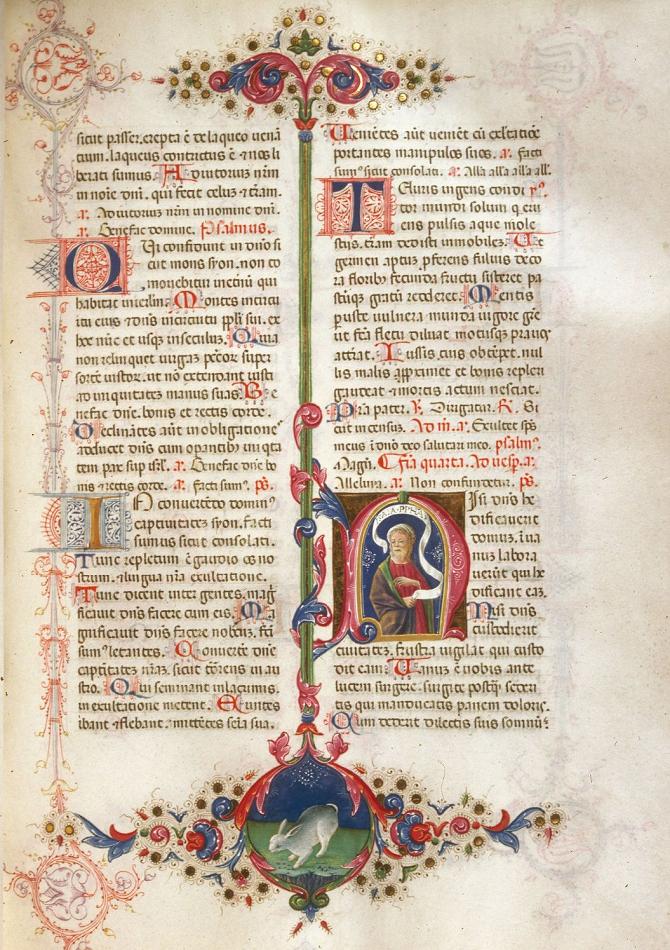 sicut passer. erepta ē de laqueo uenā
tium. laqueus contritus ē ⁊ nos li
berati sumus. Adiutorium nr̄m
in noīe dn̄i. qui fecit celuȝ ⁊ t̄ram.
a. Adiutorium nr̄m in nomine dn̄i.
a. Benefac domine. Psalmus.
Qui confidunt in dn̄o si
cut mons syon. non cō
mouebitur in et̄nū qui
habitat in ierl̄m. Montes in circui
itu eius ⁊ dn̄s in circuitu ppl̄i sui. ex
hoc nūc et usqȝ in seculuȝ. Quia
non relinquet uirgaȝ pctōr super
sortē iustor. ut nō extendant iusti
ad iniquitateȝ manus suas. Be
nefac dn̄e. bonis et rectis corde.
Declinātes aūt in obligatione
adducet dn̄s cum opantibȝ iniqta
tem pax sup isrl̄. a. Benefac dn̄e bo
nis ⁊ rectis corde. a. Facti sumꝰ. ps.
In conuertēdo dominꝰ
captiuitateȝ syon. facti
sumus sicut consolati.
Tunc repletum ē gaudio os no
strum. ⁊ lingua nr̄a exultatione.
Tunc dicent inter gentes. mag
ficauit dn̄s facere cum eis. Ma
gnificauit dn̄s facere nobiscȝ. fc̄ti
sumꝰ letantes. Conuerte dn̄e
captitatēȝ nr̄aȝ. sicut torēns in au
stro. Qui seminant in lacrimis.
in exultatione metent. Euntes
ibant ⁊ flebant. mittētes seīa sua.
Venietes aūt ueniēt cū exltatiōe
portantes manipulos suos. a. Facti
sumꝰ sicut consolati. a. Alla. alla. alla. all.
Teluris ingens condi ps.
tor mundi solum q eru
ens pulsis aque mole
stijs. t̄ram dedisti inmobileȝ. Ut
germen aptuȝ pferens fuluis deco
ra floribȝ fecunda fructu sisteret pa
stūqȝ gratū redderet. Mentis
puste vulnera munda uigore gr̄e
ut fc̄a fletu diluat motusqȝ prauos
atterat. Iussis tuis obtēpet. nul
lis malis appximet et bonis repleri
gaudeat ⁊ mortis actum nesciat.
Pr̄a pater. R. Dirigatur. R. Si
cut incensuȝ. Ad m̄. a. Exultet sps
meus ī deo salutari meo. psalmꝰ.
Magn̄. C Fīa quarta. Ad uesp. a.
Alleluia. a. Non confundetur. ps.
SA. A. PPHA
Nisi dn̄s he
dificauerit
domuȝ. in ua
nuȝ labora
uerūt qui he
dificant eaȝ.
Nisi dn̄s
custodierit
ciuitateȝ. frustra uigilat qui custo
dit eam. Vanuȝ ē uobis ante
lucem surgere. surgite postqȝ sederi
tis qui manducatis panem doloris.
Cum dederit dilectis suis somnūȝ